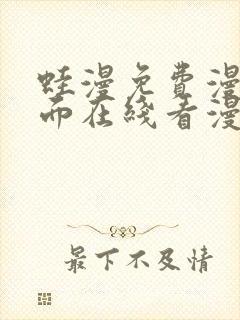 蛙漫免费漫
而在綫看漫
最下不及情